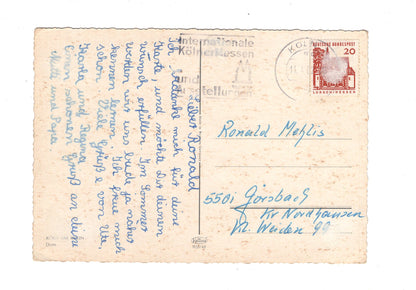 Lieber Ronald
Ich bedanke mich für deine
Karte und möchte Dir deinen
Wunsch erfüllen. Im Sommer
werden wir uns beide ja näher
kennen lernen. Ich freue mich
schon. Viele Grüße von Ute,
Marita und Regina
Einen schönen Gruß an deine
Mutti und Papa
Internationale
Kölner Messen
und
Ausstellungen
KÖLN
DEUTSCHE BUNDESPOST
20
LORSCH/HESSEN
Ronald Mehlis
5501 Görsbach
Kr Nordhausen
Kl. Weiden 99